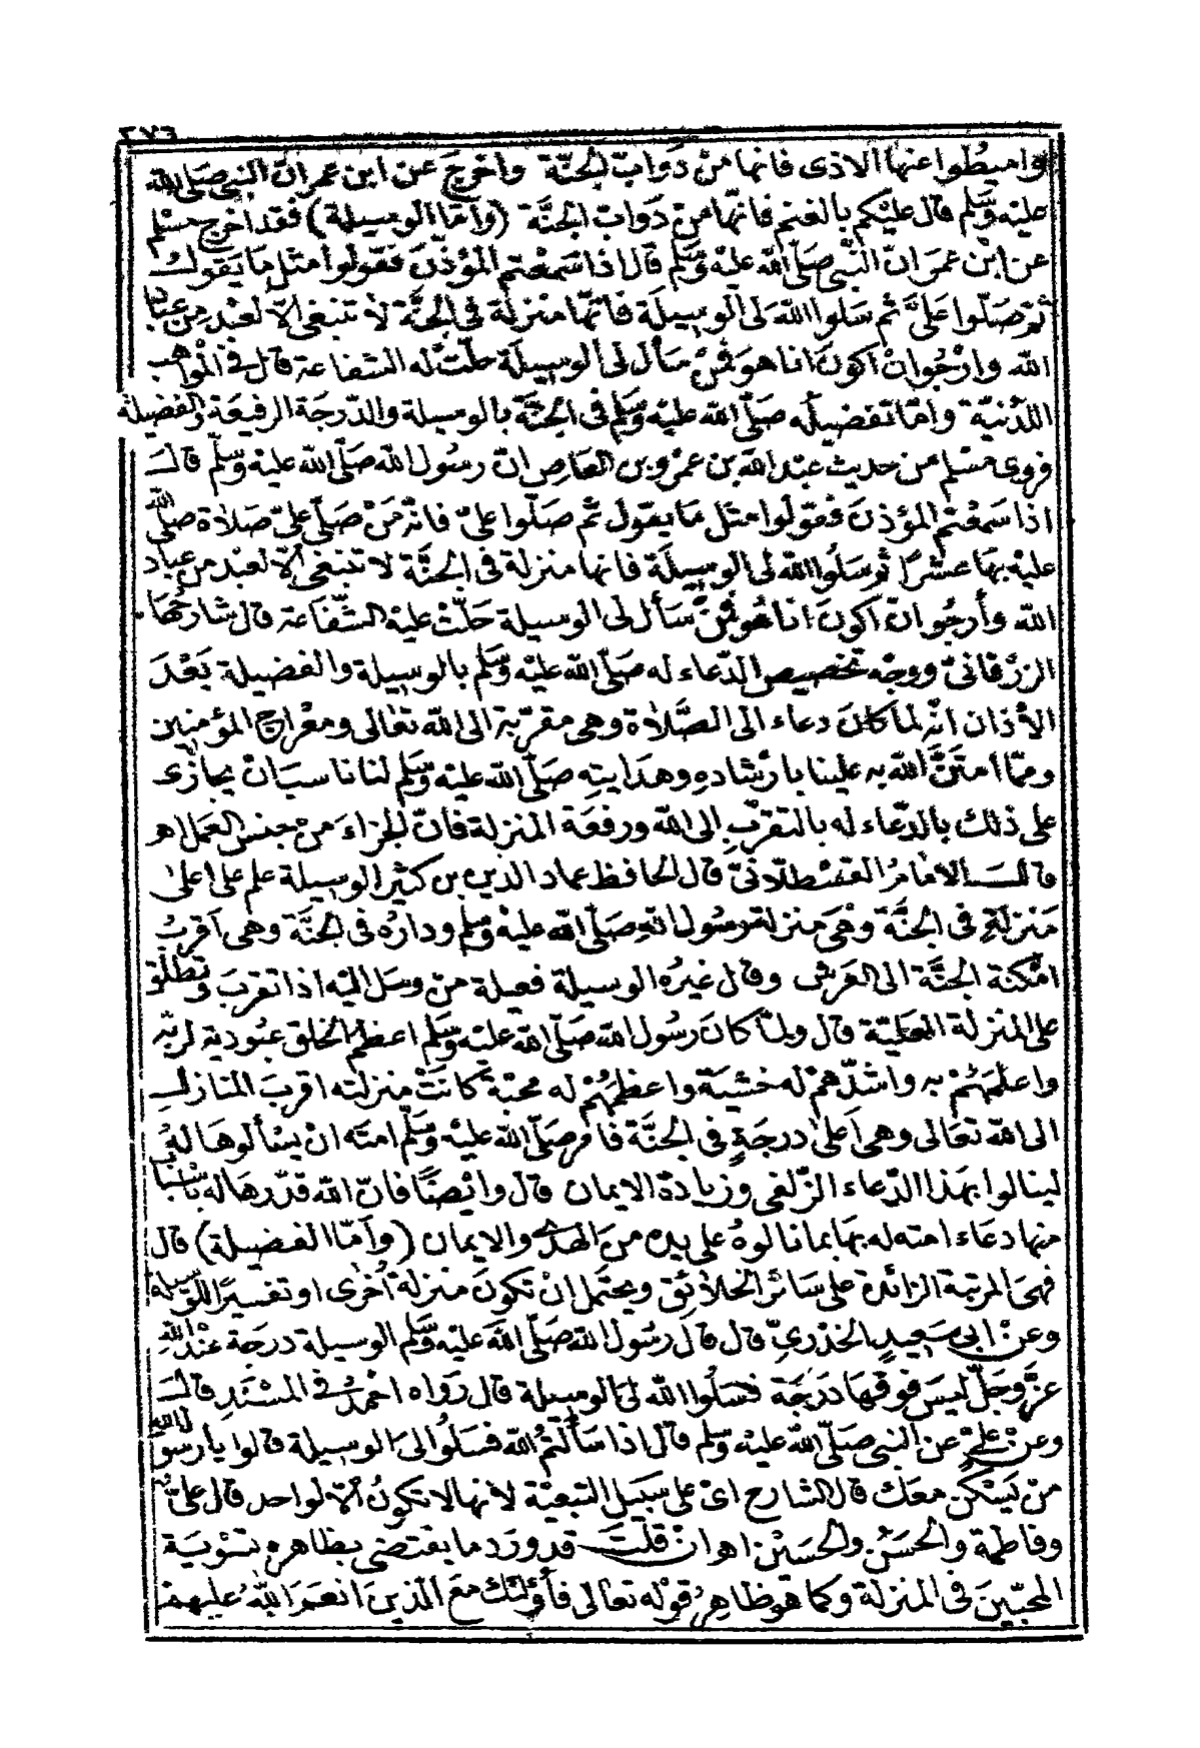 ٢٧٦
وأميطوا عنها الاذى فانها من دَوابّ الجنّة وأخرجَ عن ابن عمر انّ النبى صَلى الله
عليْه وسَّلم قال عليْكم بالغنم فانّها من دَوابّ الجنَّة (وأمّا الوسيلة) فقد اخرج مسْلم
عن ابْن عمَر انّ النّبى صَلّى الله عليْه وَسَّلم قال اذا سَمعْتم المؤذّن فقولوا مثل ما يَقول
ثمّ صَلّوا علىَّ ثم سَلوا الله لى الوسيلَة فانّها منْزلة فى الجنَّة لا تنبغى الّا لعبْد من عباد
الله وارْجُو انْ اكونَ انا هوَ فمنْ سَأل لى الوسيلَة حلّتْ له الشفاعة قال فى المْواهب
اللّدُنيّة وامّا تفضيله صَلّى الله عليْه وَسَّلم فى الجنَّة بالوسيلة والدّرجَة الرفيعَة والفضيلة
فروى مسْلم من حديث عبْد الله بن عمْرو بن العَاص ان رسُول الله صَلّى الله عليْه وسَلّم قال
اذا سَمعْتم المؤذنَ فقولُوا مثل مَا يقول ثم صَلّوا علىّ فانّه مَنْ صَلّى علىّ صَلاة صلّى الله
عليْه بهَا عشْرًا ثم سَلُوا الله لى الوسيلَة فانها منزلة فى الجنَّة لا تنبغى الّا لعبْد من عباد
الله وأرجُو انْ اكونَ انا هُو فمنْ سَأل لى الوسيلة حَلّتْ عليْه الشّفاعة قال شارحُهَا
الزرْقانىّ ووجْه تخصيص الدّعاء له صَلّى الله عليْه وَسَّلم بالوسيلة والفضيلة بَعْدَ
الأذان انّه لما كانَ دعاء الى الصَّلاة وهى مقرّبة الى الله تعالى ومعْراج المؤمنين
وممّا امتَنَّ الله به علينا بارْشادهِ وهدَايتِه صَلّى الله عليْه وَسَّلم لنا ناسبَ انْ يجازَى
على ذلك بالدّعاء له بالتقرّبِ الى الله ورفعَة المنزلة فانّ الجزاءَ منْ جنس العَمل اهـ
قال الامَامُ القسْطلّانىّ قال الحافظ عماد الدين بن كثير الوسيلة علم على اعلى
مَنزلةٍ فى الجنَّة وهْىَ منزلة رسُول اللهِ صَلّى الله عليْه وسَلم ودارُه فى الجنَّة وهى أقربُ
امْكنة الجنَّة الى العَرش وقال غيرُه الوسيلة فعيلة منْ وسَل اليْه اذا تقربَ وتطلق
على المنزلة العَليّة قال ولمّا كانَ رسُول الله صَلّى الله عليْه وَسَّلم اعظم الخلق عبُودية لربّه
واعلمَهُمْ به واشدّهمْ له خشيَة واعظمَهُمْ له محبّة كانَتْ منزلته اقربَ المنازل
الى الله تعَالى وهى أعلى درجَةٍ فى الجنَّة فأمر صَلّى الله عليْه وَسَلّم امتَه انْ يسْألوهَا لهُ
لينالوا بهذا الدّعاء الزّلفى وزيادة الايمان قال وايْضًا فانّ الله قدّرهَا له باسْباب
منها دعَاء امته له بهَا بما نالوهُ على يدِه منَ الهدَى والايمان (وأمّا الفضيلة) قال
فهىَ المرتبة الزائدة على سَائر الخلائق ويحتمل انْ تكونَ منزلة أخرى او تفسيرًا للوسيلة
وعنْ ابى سَعيدٍ الخدْرىّ قال قال رسُول الله صَلّى الله عليْه وَسَّلم الوسيلة درجَة عنْد الله
عزَّ وجَلّ ليسَ فوقهَا درَجَة فسَلُوا الله لىَ الوسيلة قال رَواه احْمدُ فى المسْنَدِ قال
وعنْ علىّ عن النبى صَلّى الله عليْه وَسَلم قال اذا سَألتمُ الله فسَلُوا لىَ الوسيلة قالوا يا رسُول الله
منْ يَسْكن معَك قال الشارح اىْ على سَبيل التبعيّة لأنها لا تكونُ الّا لواحد قال علىّ
وفاطمة والحسَنُ والحسَيْن اهـ وان قلْتَ قد ورَد ما يقتضى بظاهره تسْويَة
المحبّينَ فى المنزلة وكما هو ظاهرُ قوْله تعالى فأولئك معَ الذينَ انعَمَ اللّهُ عليهمْ